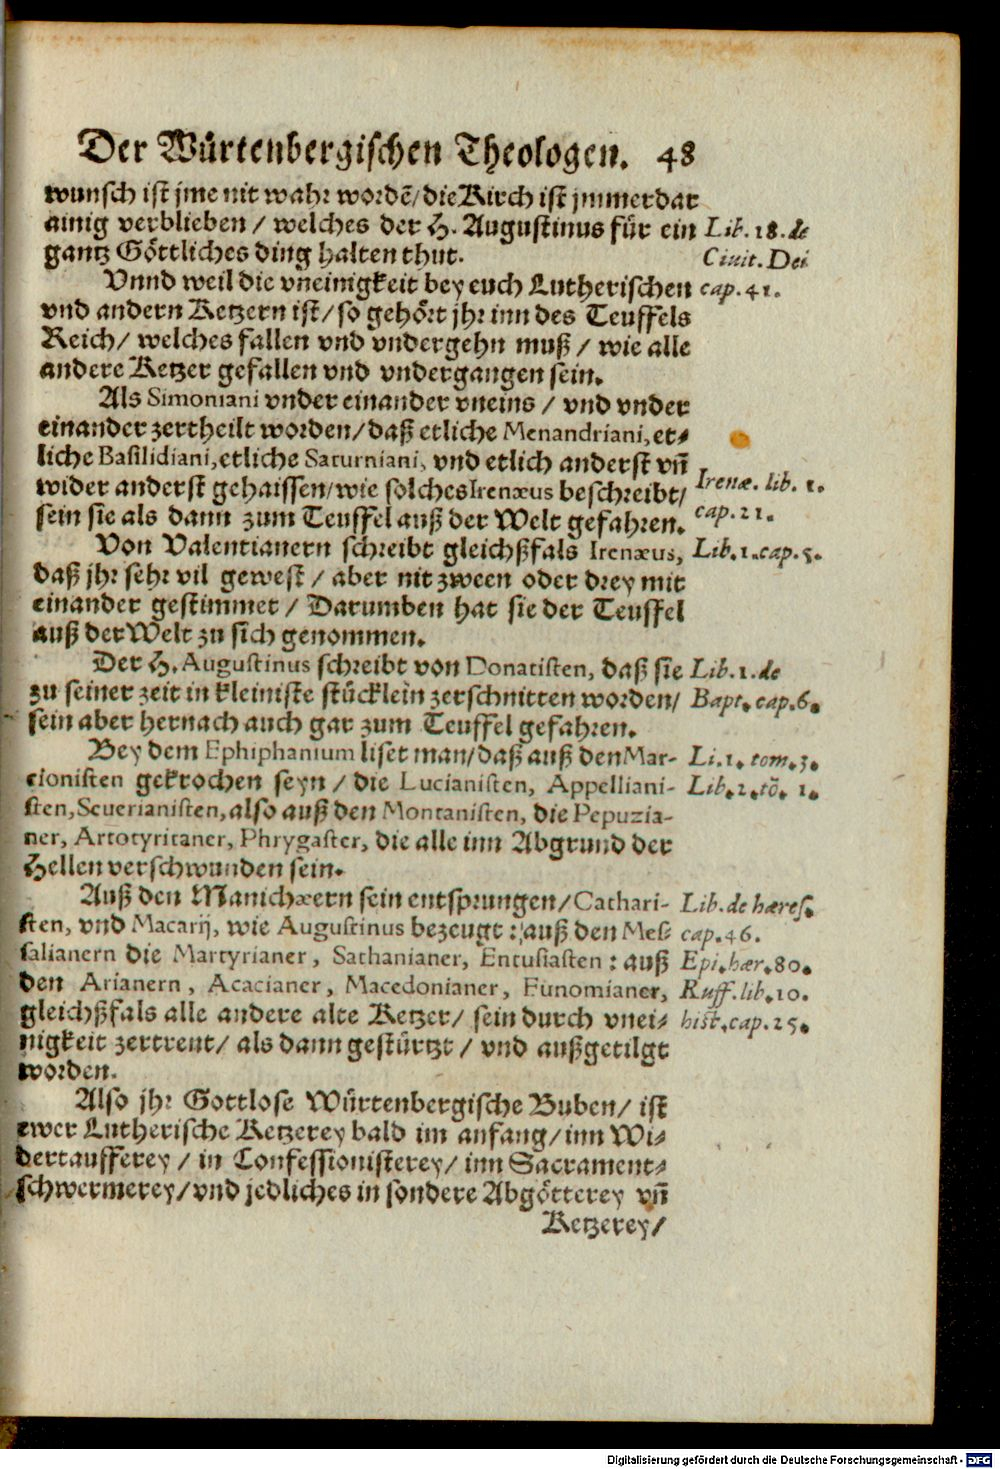 Der Würtenbergischen Theologen. 48
wunsch ist jme nit wahr wordē/ die Kirch ist jmmerdar
ainig verblieben / welches der H. Augustinus für ein
gantz Göttliches ding halten thut.
Lib. 18. de
Ciuit. Dei
cap. 41.
Vnnd weil die vneinigkeit bey euch Lutherischen
vnd andern Ketzern ist/ so gehört jhr inn des Teuffels
Reich/ welches fallen vnd vndergehn muß / wie alle
andere Ketzer gefallen vnd vndergangen sein.
Als Simoniani vnder einander vneins / vnd vnder
einander zertheilt worden/ daß etliche Menandriani, et⸗
liche Basilidiani, etliche Saturniani, vnd etlich anderst vñ
wider anderst gehaissen/ wie solches Irenæus beschreibt/
sein sie als dann zum Teuffel auß der Welt gefahren.
Irenæ. lib. 1.
cap. 21.
Von Valentianern schreibt gleichßfals Irenæus,
daß jhr sehr vil gewest / aber nit zween oder drey mit
einander gestimmet / Darumben hat sie der Teuffel
auß der Welt zu sich genommen.
Lib. 1. cap. 5.
Der H. Augustinus schreibt von Donatisten, daß sie
zu seiner zeit in kleiniste stücklein zerschnitten worden/
sein aber hernach auch gar zum Teuffel gefahren.
Lib. 1. de
Bapt. cap. 6.
Bey dem Ephiphanium liset man/ daß auß den Mar-
cionisten gekrochen seyn / die Lucianisten, Appelliani-
sten, Seuerianisten, also auß den Montanisten, die Pepuzia-
ner, Artotyritaner, Phrygaster, die alle inn Abgrund der
Hellen verschwunden sein.
Li. 1. tom. 3.
Lib. 2. tō. 1.
Auß den Manichæern sein entsprungen/ Cathari-
sten, vnd Macarij, wie Augustinus bezeugt : auß den Mes⸗
salianern die Martyrianer, Sathanianer, Entusiasten : auß
den Arianern, Acacianer, Macedonianer, Eunomianer,
gleichßfals alle andere alte Ketzer/ sein durch vnei⸗
nigkeit zertrent/ als dann gestürtzt / vnd außgetilgt
worden.
Lib. de hæres.
cap. 46.
Epi. hær. 80.
Ruff. lib. 10.
hist. cap. 25.
Also jhr Gottlose Würtenbergische Buben/ ist
ewer Lutherische Ketzerey bald im anfang/ inn Wi⸗
dertaufferey / in Confessionisterey/ inn Sacrament⸗
schwermerey/ vnd jedliches in sondere Abgötterey vñ
Ketzerey/
Digitalisierung gefördert durch die Deutsche Forschungsgemeinschaft - DFG